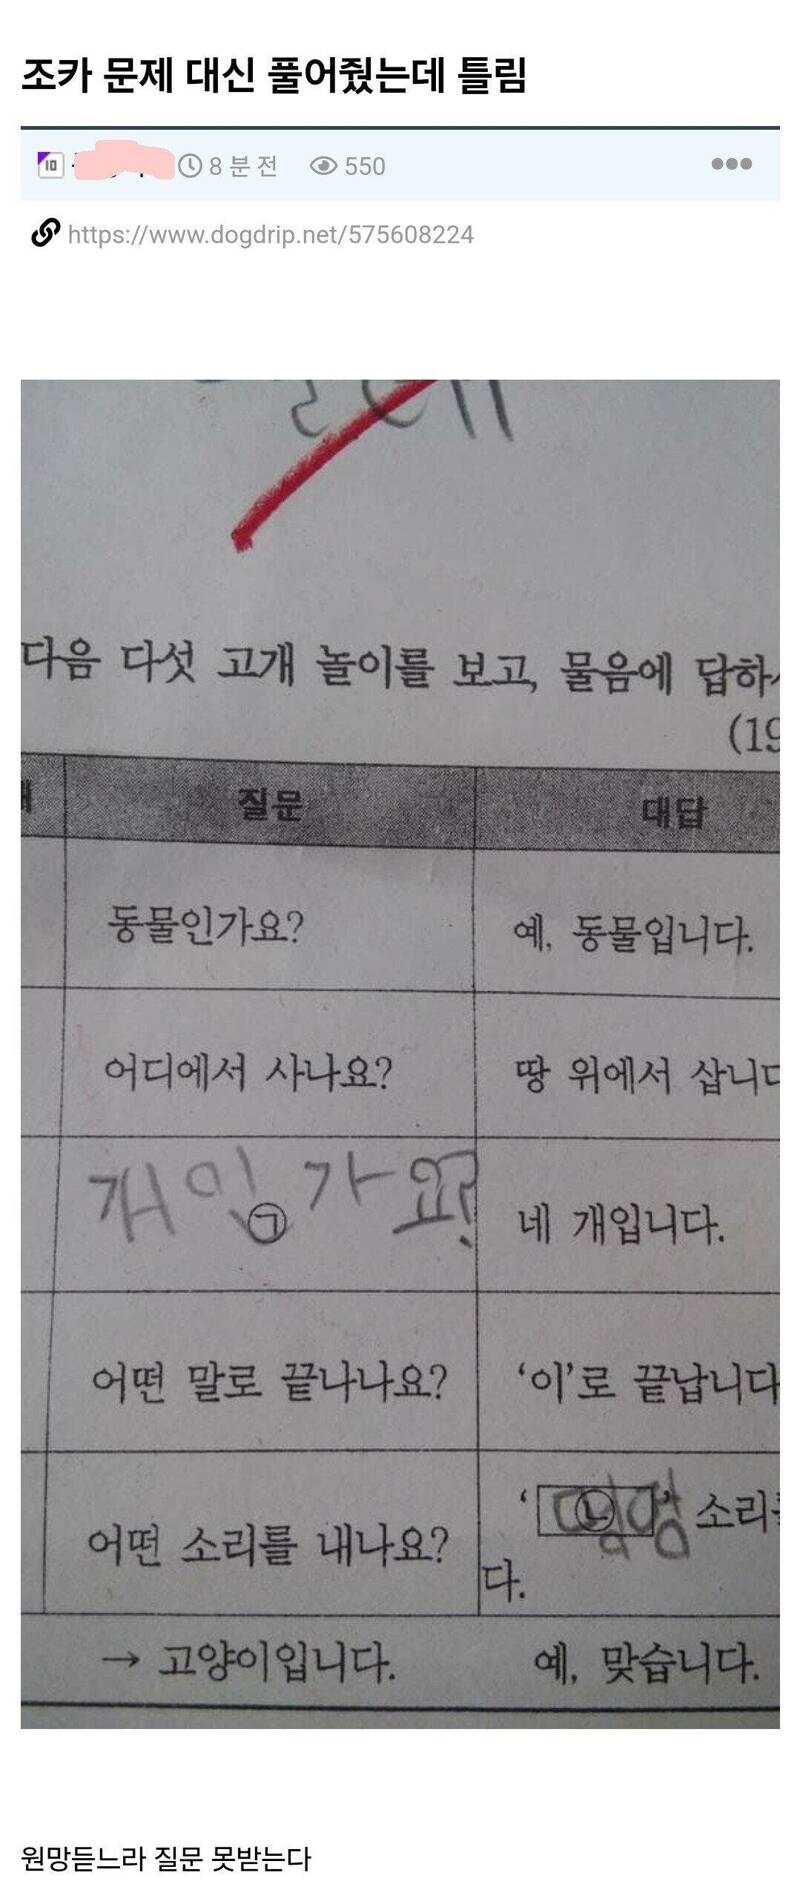 조카 문제 대신 풀어줬는데 틀림
8 분 전 550
https://www.dogdrip.net/575608224
다음 다섯 고개 놀이를 보고, 물음에 답하
(19
질문 대답
동물인가요? 예, 동물입니다.
어디에서 사나요? 땅 위에서 삽니다
개인가요? ㉠ 네 개입니다.
어떤 말로 끝나나요? ‘이’로 끝납니다
‘ ㉡ 멍멍 ’ 소리를
어떤 소리를 내나요?
다.
→ 고양이입니다. 예, 맞습니다.
원망듣느라 질문 못받는다